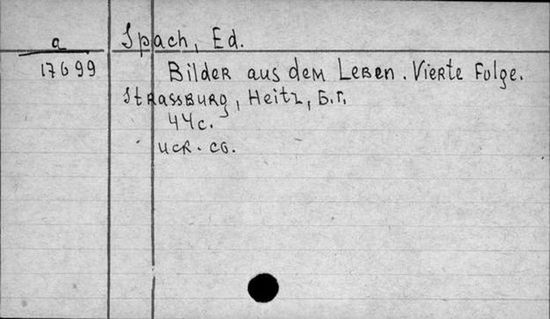 a
17699
Spach, Ed.
Bilder aus dem Leben. Vierte Folge.
Strassburg, Heitz, Б.г.
44с.
иск. сб.